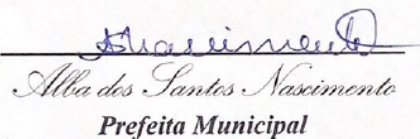 Alba dos Santos Nascimento
Prefeita Municipal